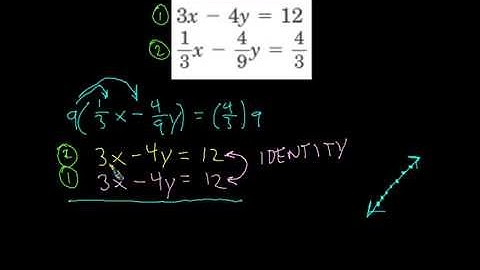 ① 3x − 4y = 12
② 1/3 x − 4/9 y = 4/3
9(1/3 x − 4/9 y) = (4/3)9
② 3x − 4y = 12 IDENTITY
① 3x − 4y = 12